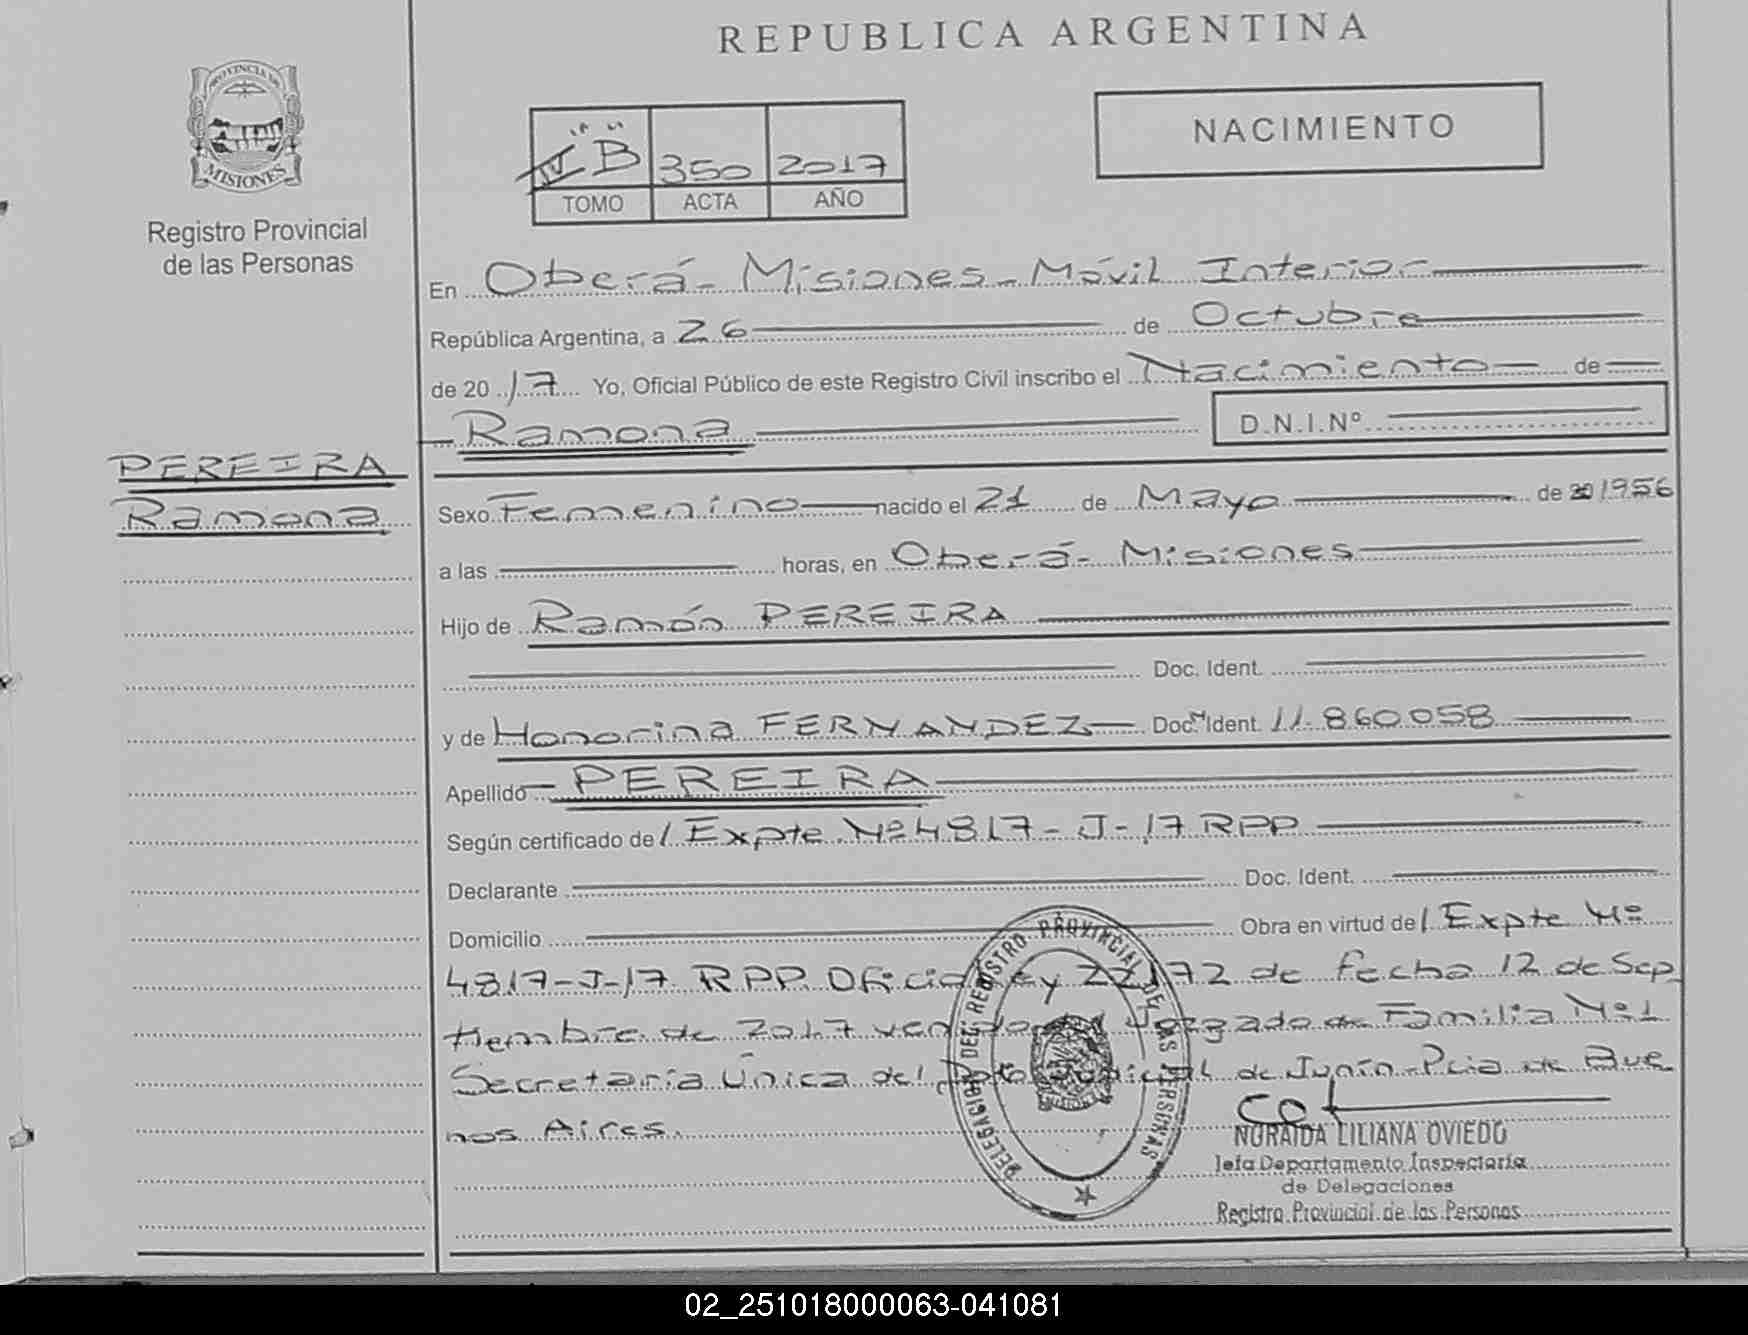 REPUBLICA ARGENTINA
PROVINCIA DE
MISIONES
Registro Provincial
de las Personas
B 350 2017
TOMO ACTA AÑO
NACIMIENTO
En Oberá - Misiones - Móvil Interior
República Argentina, a 26 de Octubre
de 20 17 Yo, Oficial Público de este Registro Civil inscribo el Nacimiento de
Ramona D.N.I.Nº
PEREIRA
Ramona
Sexo Femenino nacido el 21 de Mayo de 20 1956
a las horas, en Oberá - Misiones
Hijo de Ramón PEREIRA
Doc. Ident.
y de Honorina FERNANDEZ Doc. Ident. 11.860.058
Apellido PEREIRA
Según certificado de / Expte Nº 4817 - J - 17 RPP
Declarante Doc. Ident.
Domicilio Obra en virtud de / Expte Nº
4817-J-17 RPP. Oficio Ley 22172 de fecha 12 de Sep
tiembre de 2017 venido del Juzgado de Familia Nº 1
Secretaría Única del Dpto Judicial de Junín - Pcia de Bue
nos Aires.
DELEGACION DEL REGISTRO PROVINCIAL DE LAS PERSONAS
MISIONES
NORAIDA LILIANA OVIEDO
Jefa Departamento Inspectoría
de Delegaciones
Registro Provincial de las Personas
02_251018000063-041081